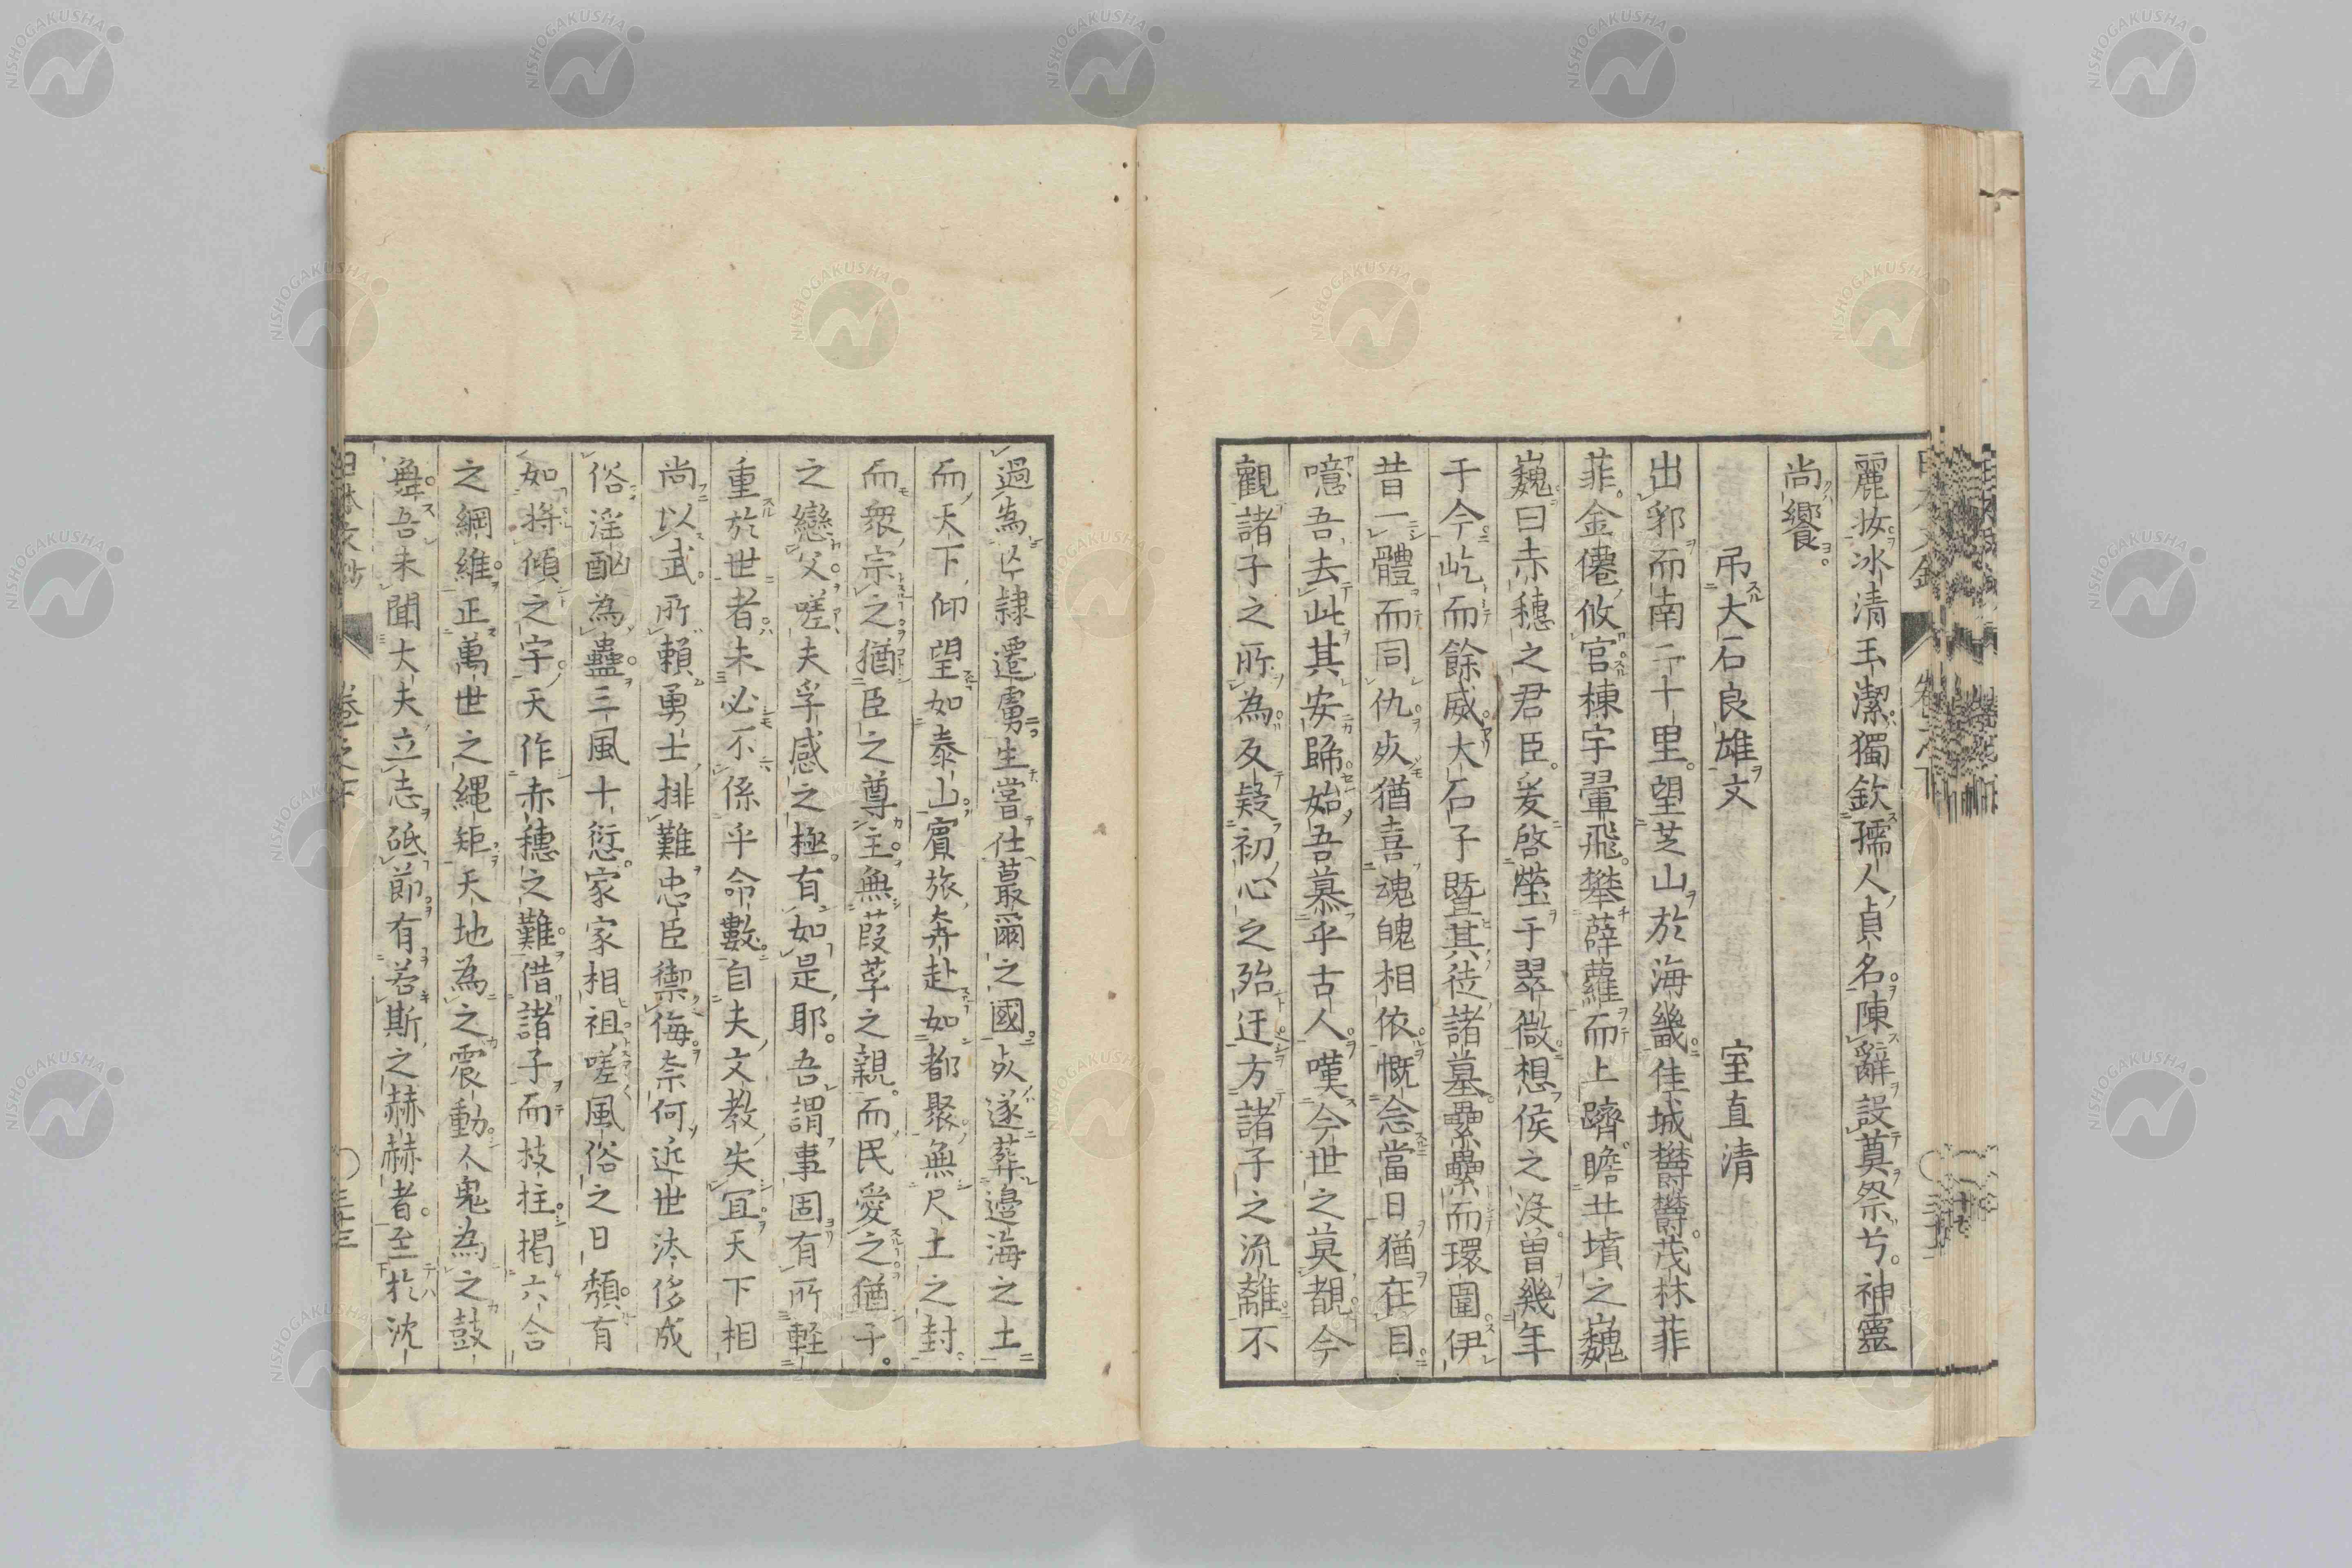 麗妝冰清玉潔獨欽孺人貞名陳辭設奠祭兮神靈
尚饗
吊大石良雄文 室直清
出郭而南二十里望芝山於海畿佳城欝欝茂林菲
菲金僊攸官棟宇翬飛攀薜蘿而上躋瞻丗墳之巍
巍曰赤穗之君臣爰啓塋于翠微想侯之沒曽幾年
于今屹而餘威大石子曁其徒諸墓纍纍而環圍伊
昔一體而同仇死猶喜魂魄相依慨念當日猶在目
噫吾去此其安歸始吾慕乎古人嘆今世之莫覩今
觀諸子之所為反疑初心之殆迂方諸子之流離不
過為亡隷遷虜生嘗仕蕞爾之國死遂葬邉海之土
而天下仰望如泰山賓旅奔赴如都聚無尺土之封
而衆宗之猶臣之尊主無葭莩之親而民愛之猶子
之戀父嗟夫孚感之極有如是耶吾謂事固有所軽
重於世者未必不係乎命數自夫文教失冝天下相
尚以武所頼勇士排難忠臣禦侮柰何近世汰侈成
俗淫酗為蠱三風十愆家家相祖嗟風俗之日頽有
如将傾之宇天作赤穗之難借諸子而枝柱掲六合
之綱維正萬世之縄矩天地為之震動人鬼為之鼓
舞吾未聞大夫立志砥節有若斯之赫赫者至於沈
卷之下
三十三